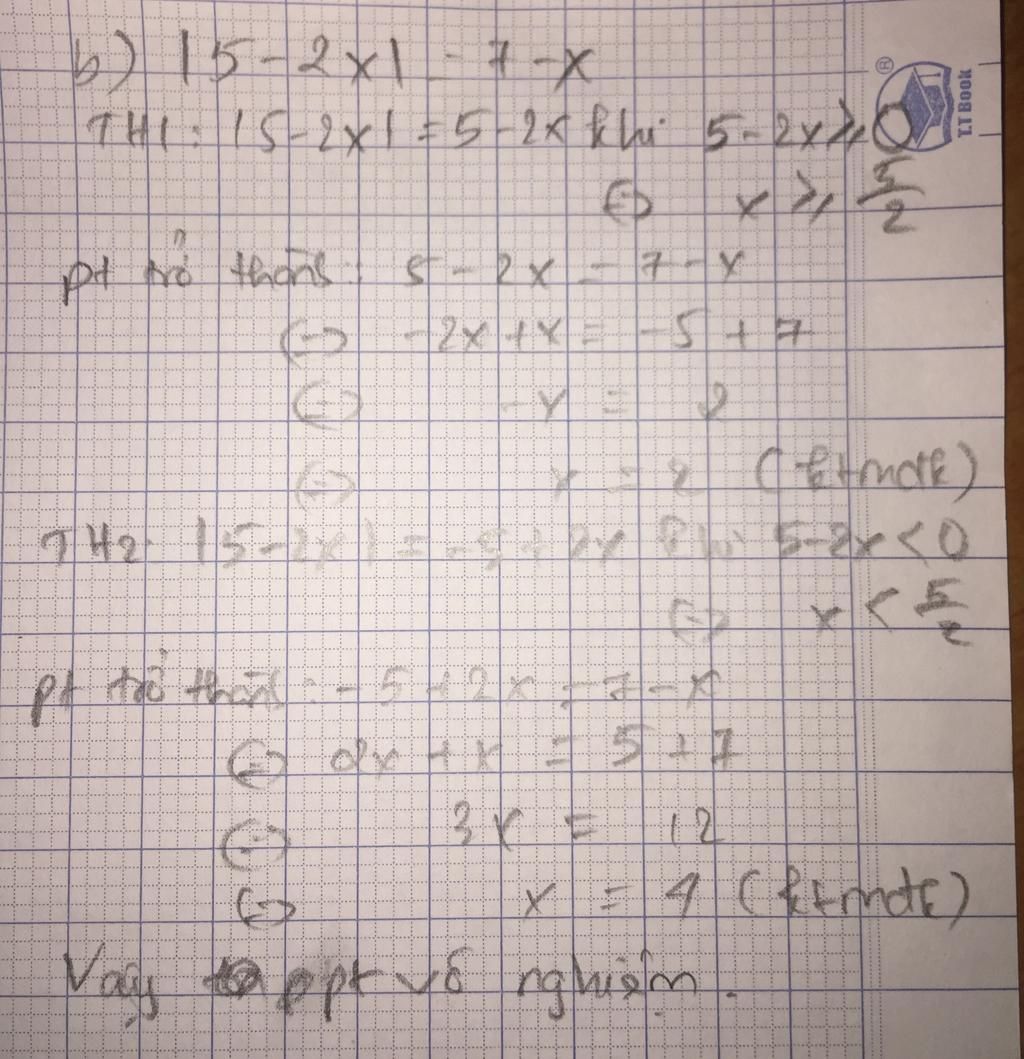 b) |5-2x| = 7-x
TH1: |5-2x| = 5-2x khi 5-2x ≥ 0
® T.T Book
⇔ x ≥ 5/2
pt trở thành: 5-2x = 7-x
⇔ -2x+x = -5+7
⇔ -x = 2
⇔ x = 2 (ktmđk)
TH2: |5-2x| = -5+2x khi 5-2x<0
⇔ x < 5/2
pt trở thành: -5+2x = 7-x
⇔ 2x+x = 5+7
⇔ 3x = 12
⇔ x = 4 (ktmđk)
Vậy pt vô nghiệm.